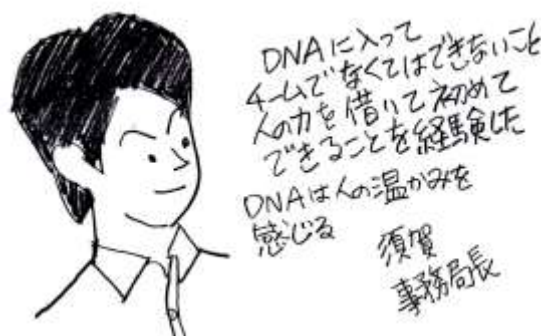 DNAに入って
チームでなくてはできないこと
人の力を借りて初めて
できることを経験した
DNAは人の温かみを
感じる
須賀
事務局長